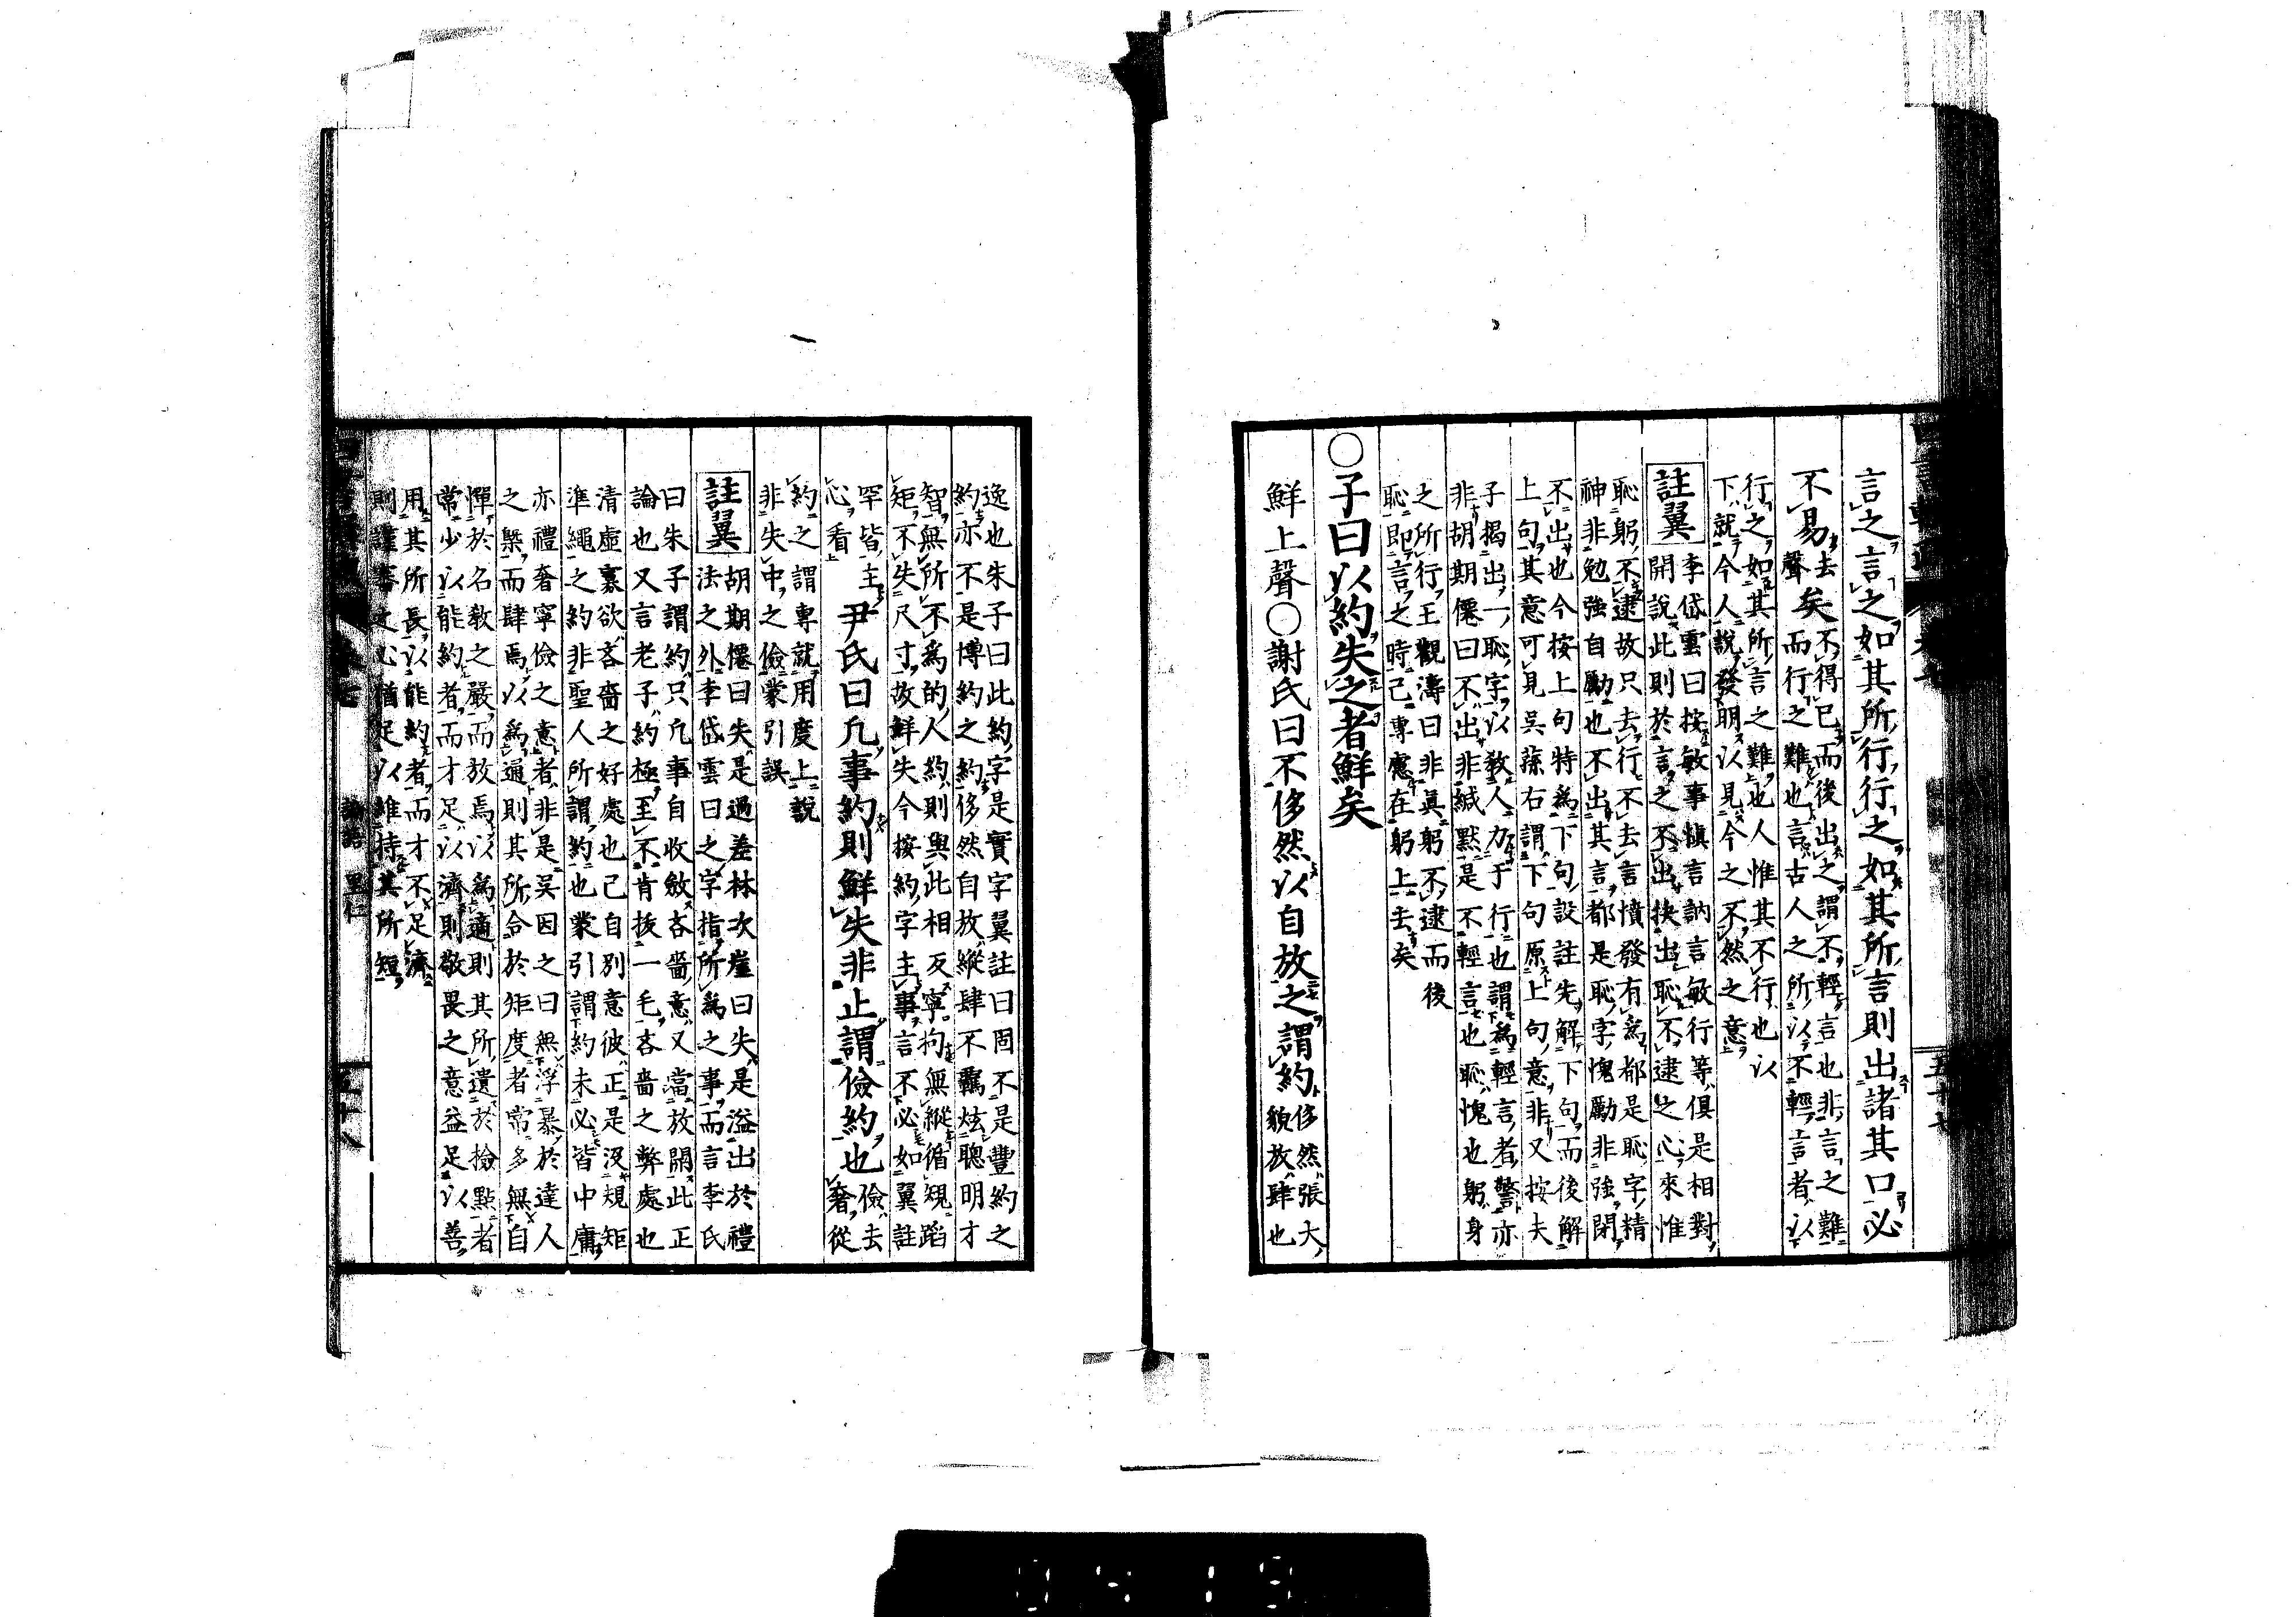 言之言之如其所行行之如其所言則出諸其口必
不易去聲矣不得已而後出之謂不輕言也非言之難
而行之難也言古人之所以不輕言者以
行之如其所言之難也人惟其不行也以
下就今人說發明以見今之不然之意
註翼李岱雲曰按敏事慎言訥言敏行等俱是相對
開說此則於言之不出抉出恥不逮之心來惟
恥躬不逮故只去行不去言憤發有為都是恥字精
神非勉強自勵也不出其言都是恥字愧勵非強閉
不出也今按上句特為下句設註先解下句而後解
上句其意可見吳蓀右謂下句原上句意非又按夫
子揭出一恥字以教人力于行也謂為輕言者警亦
非胡期僊曰不出非緘默是不輕言也恥愧也躬身
之所行王觀濤曰非真躬不逮而後
恥即言之時己專慮在躬上去矣
○子曰以約失之者鮮矣
鮮上聲○謝氏曰不侈然以自放之謂約侈然張大
貌放肆也
逸也朱子曰此約字是實字翼註曰固不是豐約之
約亦不是博約之約侈然自放縱肆不羈炫聰明才
智無所不為的人約則與此相反寧拘無縱循規蹈
矩不失尺寸故鮮失今按約字主事言不必如翼註
罕皆主
心看
尹氏曰凡事約則鮮失非止謂儉約也儉去
奢從
約之謂專就用度上說
非失中之儉蒙引誤
註翼胡期僊曰失是過差林次崖曰失是溢出於禮
法之外李岱雲曰之字指所為之事而言李氏
曰朱子謂約只凡事自收斂吝嗇意又當放開此正
論也又言老子約極至不肯拔一毛吝嗇之弊處也
清虛寡欲吝嗇之好處也己自別意彼正是沒規矩
準繩之約非聖人所謂約也蒙引謂約未必皆中庸
亦禮奢寧儉之意者非是吳因之曰無浮暴於達人
之槩而肆焉以為通則其所合於矩度者常多無自
憚於名教之嚴而放焉以為適則其所遺於檢點者
常少以能約者而才足以濟則敬畏之意益足以善
用其所長以能約者而才不足濟
則謹審之心猶足以維持其所短
論語 里仁
五十八